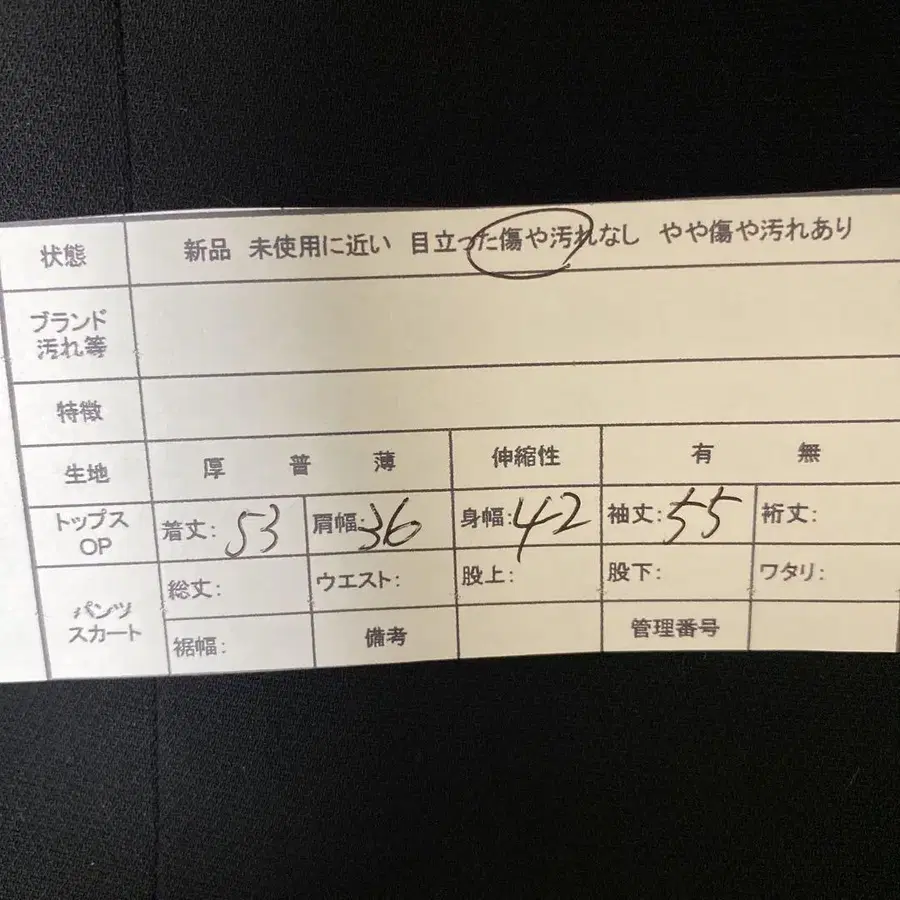 状態 新品 未使用に近い 目立った傷や汚れなし やや傷や汚れあり
ブランド
汚れ等
特徴
生地 厚 普 薄 伸縮性 有 無
トップス
OP
着丈: 53 肩幅: 36 身幅: 42 袖丈: 55 裄丈:
パンツ
スカート
総丈: ウエスト: 股上: 股下: ワタリ:
裾幅: 備考 管理番号